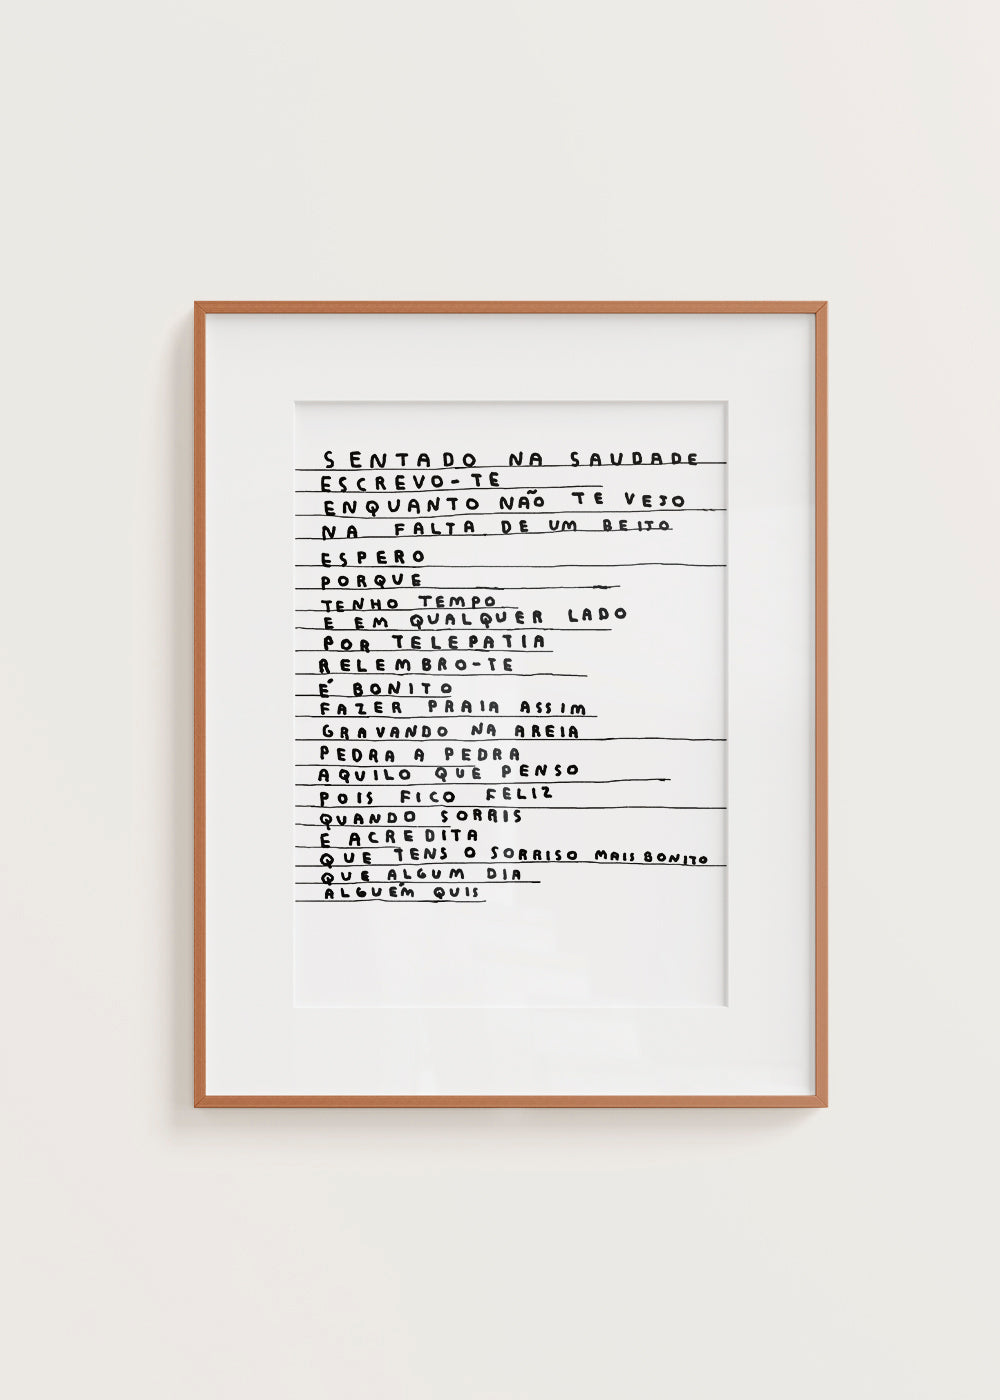 SENTADO NA SAUDADE
ESCREVO-TE
ENQUANTO NÃO TE VEJO
NA FALTA DE UM BEIJO
ESPERO
PORQUE
TENHO TEMPO
E EM QUALQUER LADO
POR TELEPATIA
RELEMBRO-TE
É BONITO
FAZER PRAIA ASSIM
GRAVANDO NA AREIA
PEDRA A PEDRA
AQUILO QUE PENSO
POIS FICO FELIZ
QUANDO SORRIS
E ACREDITA
QUE TENS O SORRISO MAIS BONITO
QUE ALGUM DIA
ALGUÉM QUIS